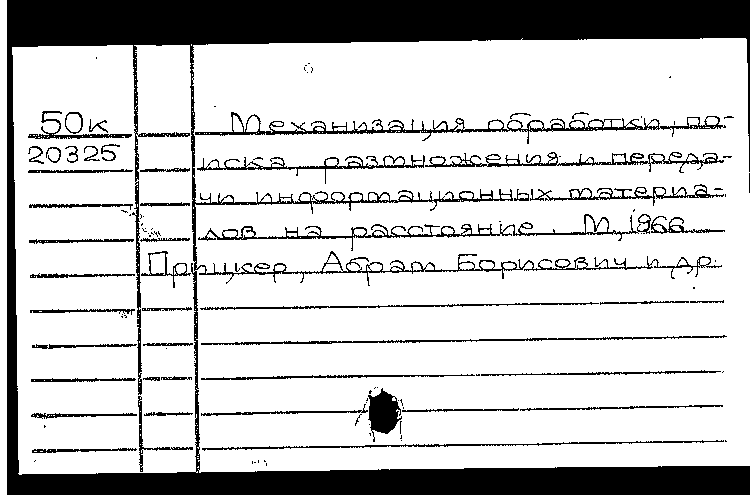 50к Механизация обработки, по-
20325 иска, размножения и переда-
чи информационных материа-
лов на расстояние. М, 1966
Прицкер, Абрам Борисович и др.